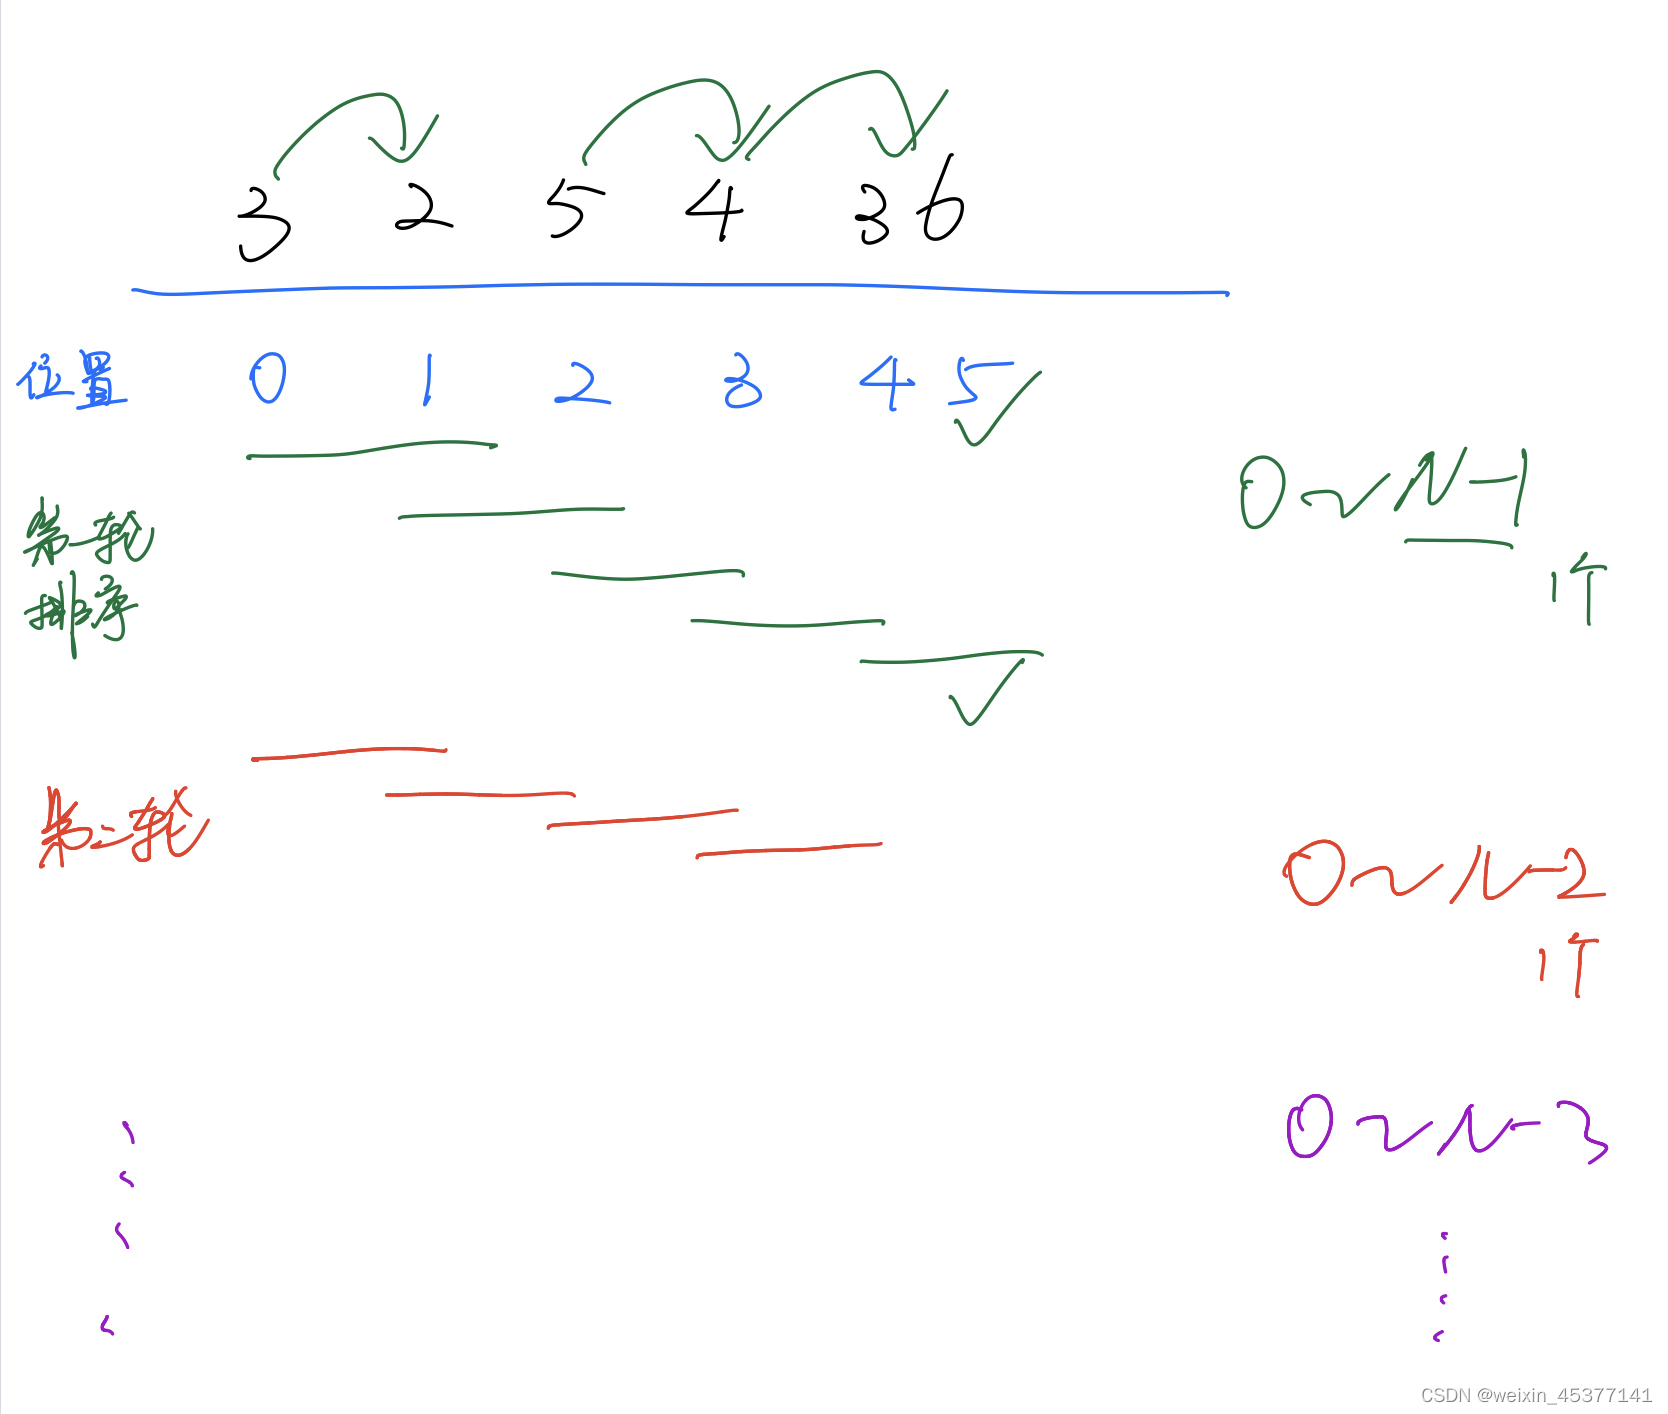 3 2 5 4 3 6
位置 0 1 2 3 4 5
第一轮
排序
0~N-1
个
第二轮
0~N-2
个
0~N-3
CSDN @weixin_45377141